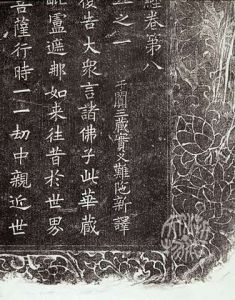 經卷第八
五之一　于闐三藏實叉難陀新譯
復告大衆言諸佛子此華藏
毗盧遮那如來往昔於世界
菩薩行時一一劫中親近世